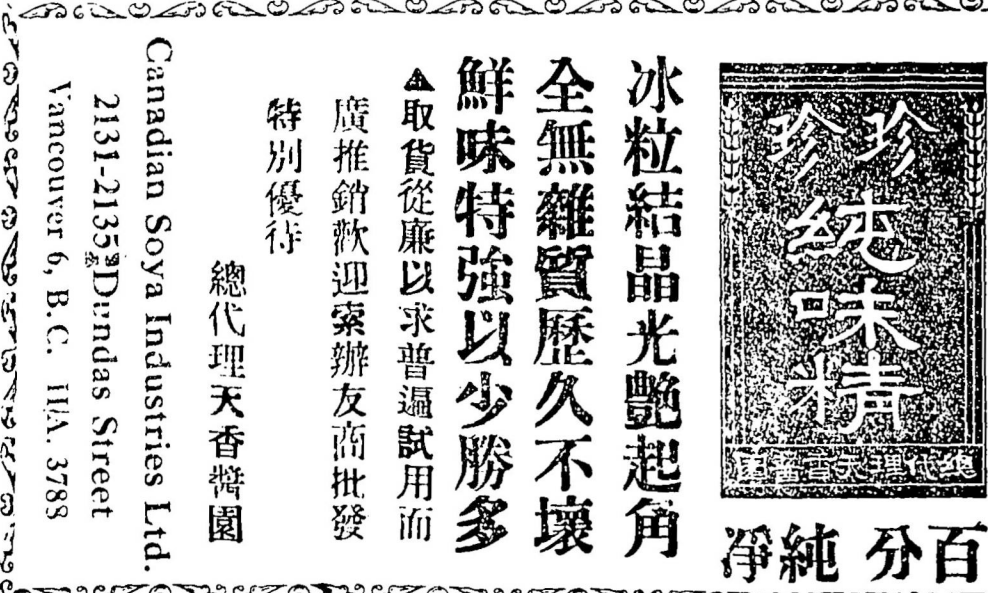 珍珍
純味精
總代理天香醬園
百分純淨
冰粒結晶光艷起角
全無雜質歷久不壞
鮮味特強以少勝多
▲取貨從廉以求普遍試用而
廣推銷歡迎索辦友商批發
特別優待
總代理天香醬園
Canadian Soya Industries Ltd.
2131-2135 Dundas Street
Vancouver 6, B.C. HA. 3788